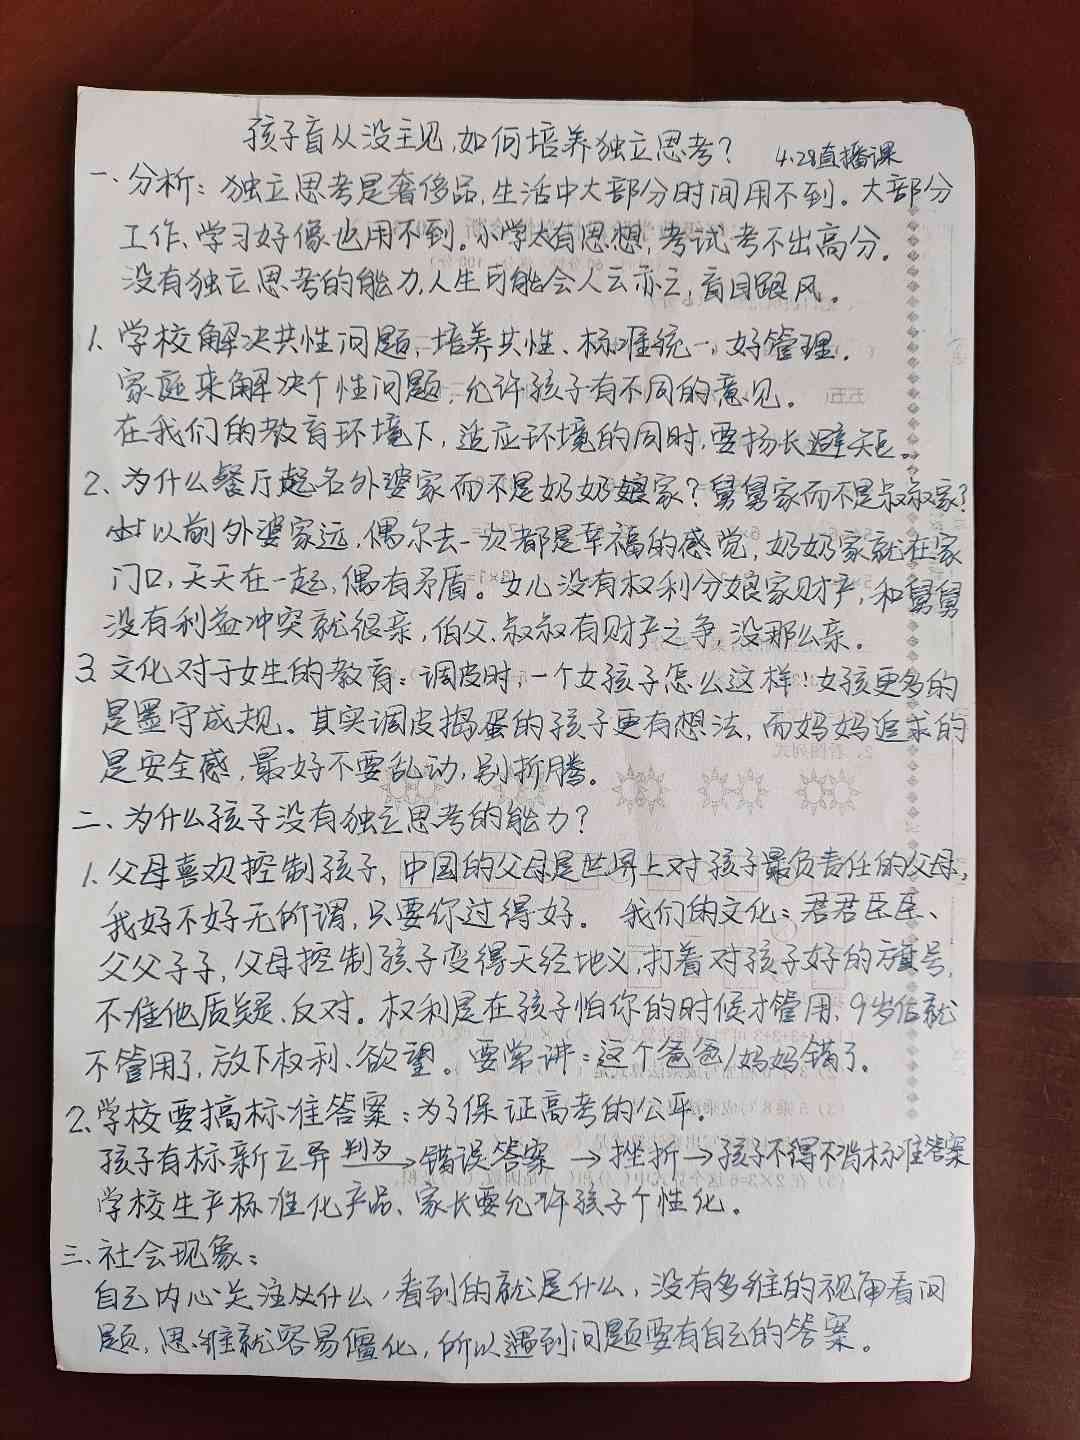 孩子盲从没主见,如何培养独立思考? 4.28直播课
一、分析:独立思考是奢侈品,生活中大部分时间用不到。大部分
工作、学习好像也用不到。小学太有思想,考试考不出高分。
没有独立思考的能力,人生可能会人云亦云,盲目跟风。
1、学校解决共性问题,培养共性、标准统一,好管理.
家庭来解决个性问题,允许孩子有不同的意见。
在我们的教育环境下,适应环境的同时,要扬长避短。
2、为什么餐厅起名外婆家而不是奶奶家?舅舅家而不是叔叔家?
以前外婆家远,偶尔去一次都是幸福的感觉,奶奶家就在家
门口,天天在一起,偶有矛盾。女儿没有权利分娘家财产,和舅舅
没有利益冲突就很亲,伯父、叔叔有财产之争,没那么亲.
3.文化对于女生的教育:调皮时,一个女孩子怎么这样!女孩更多的
是墨守成规。其实调皮捣蛋的孩子更有想法,而妈妈追求的
是安全感,最好不要乱动,别折腾。
二、为什么孩子没有独立思考的能力?
1.父母喜欢控制孩子,中国的父母是世界上对孩子最负责任的父母,
我好不好无所谓,只要你过得好。 我们的文化:君君臣臣、
父父子子,父母控制孩子变得天经地义,打着对孩子好的旗号,
不准他质疑、反对。权利是在孩子怕你的时候才管用,9岁后就
不管用了,放下权利、欲望。要常讲:这个爸爸/妈妈错了。
2.学校要搞标准答案:为了保证高考的公平。
孩子有标新立异 判为→ 错误答案 → 挫折 → 孩子不得不背标准答案
学校生产标准化产品、家长要允许孩子个性化。
三、社会现象:
自己内心关注什么,看到的就是什么,没有多维的视角看问
题,思维就容易僵化,所以遇到问题要有自己的答案。